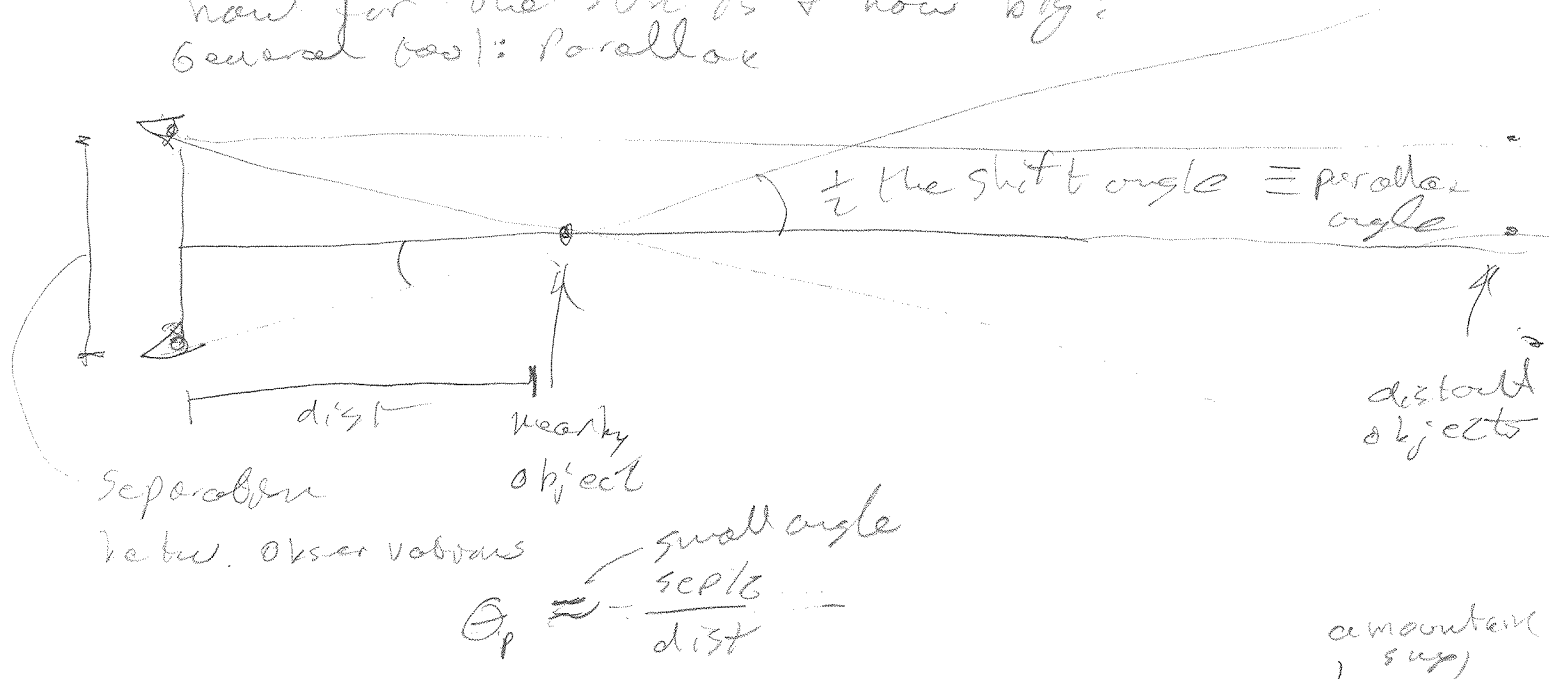 how far the sun is & how big?
General tool: Parallax
½ the shift angle ≡ parallax
angle
dist
nearby
object
distant
objects
Separation
betw. observations
small angle
θp ≈ sep/2 / dist
a mountain